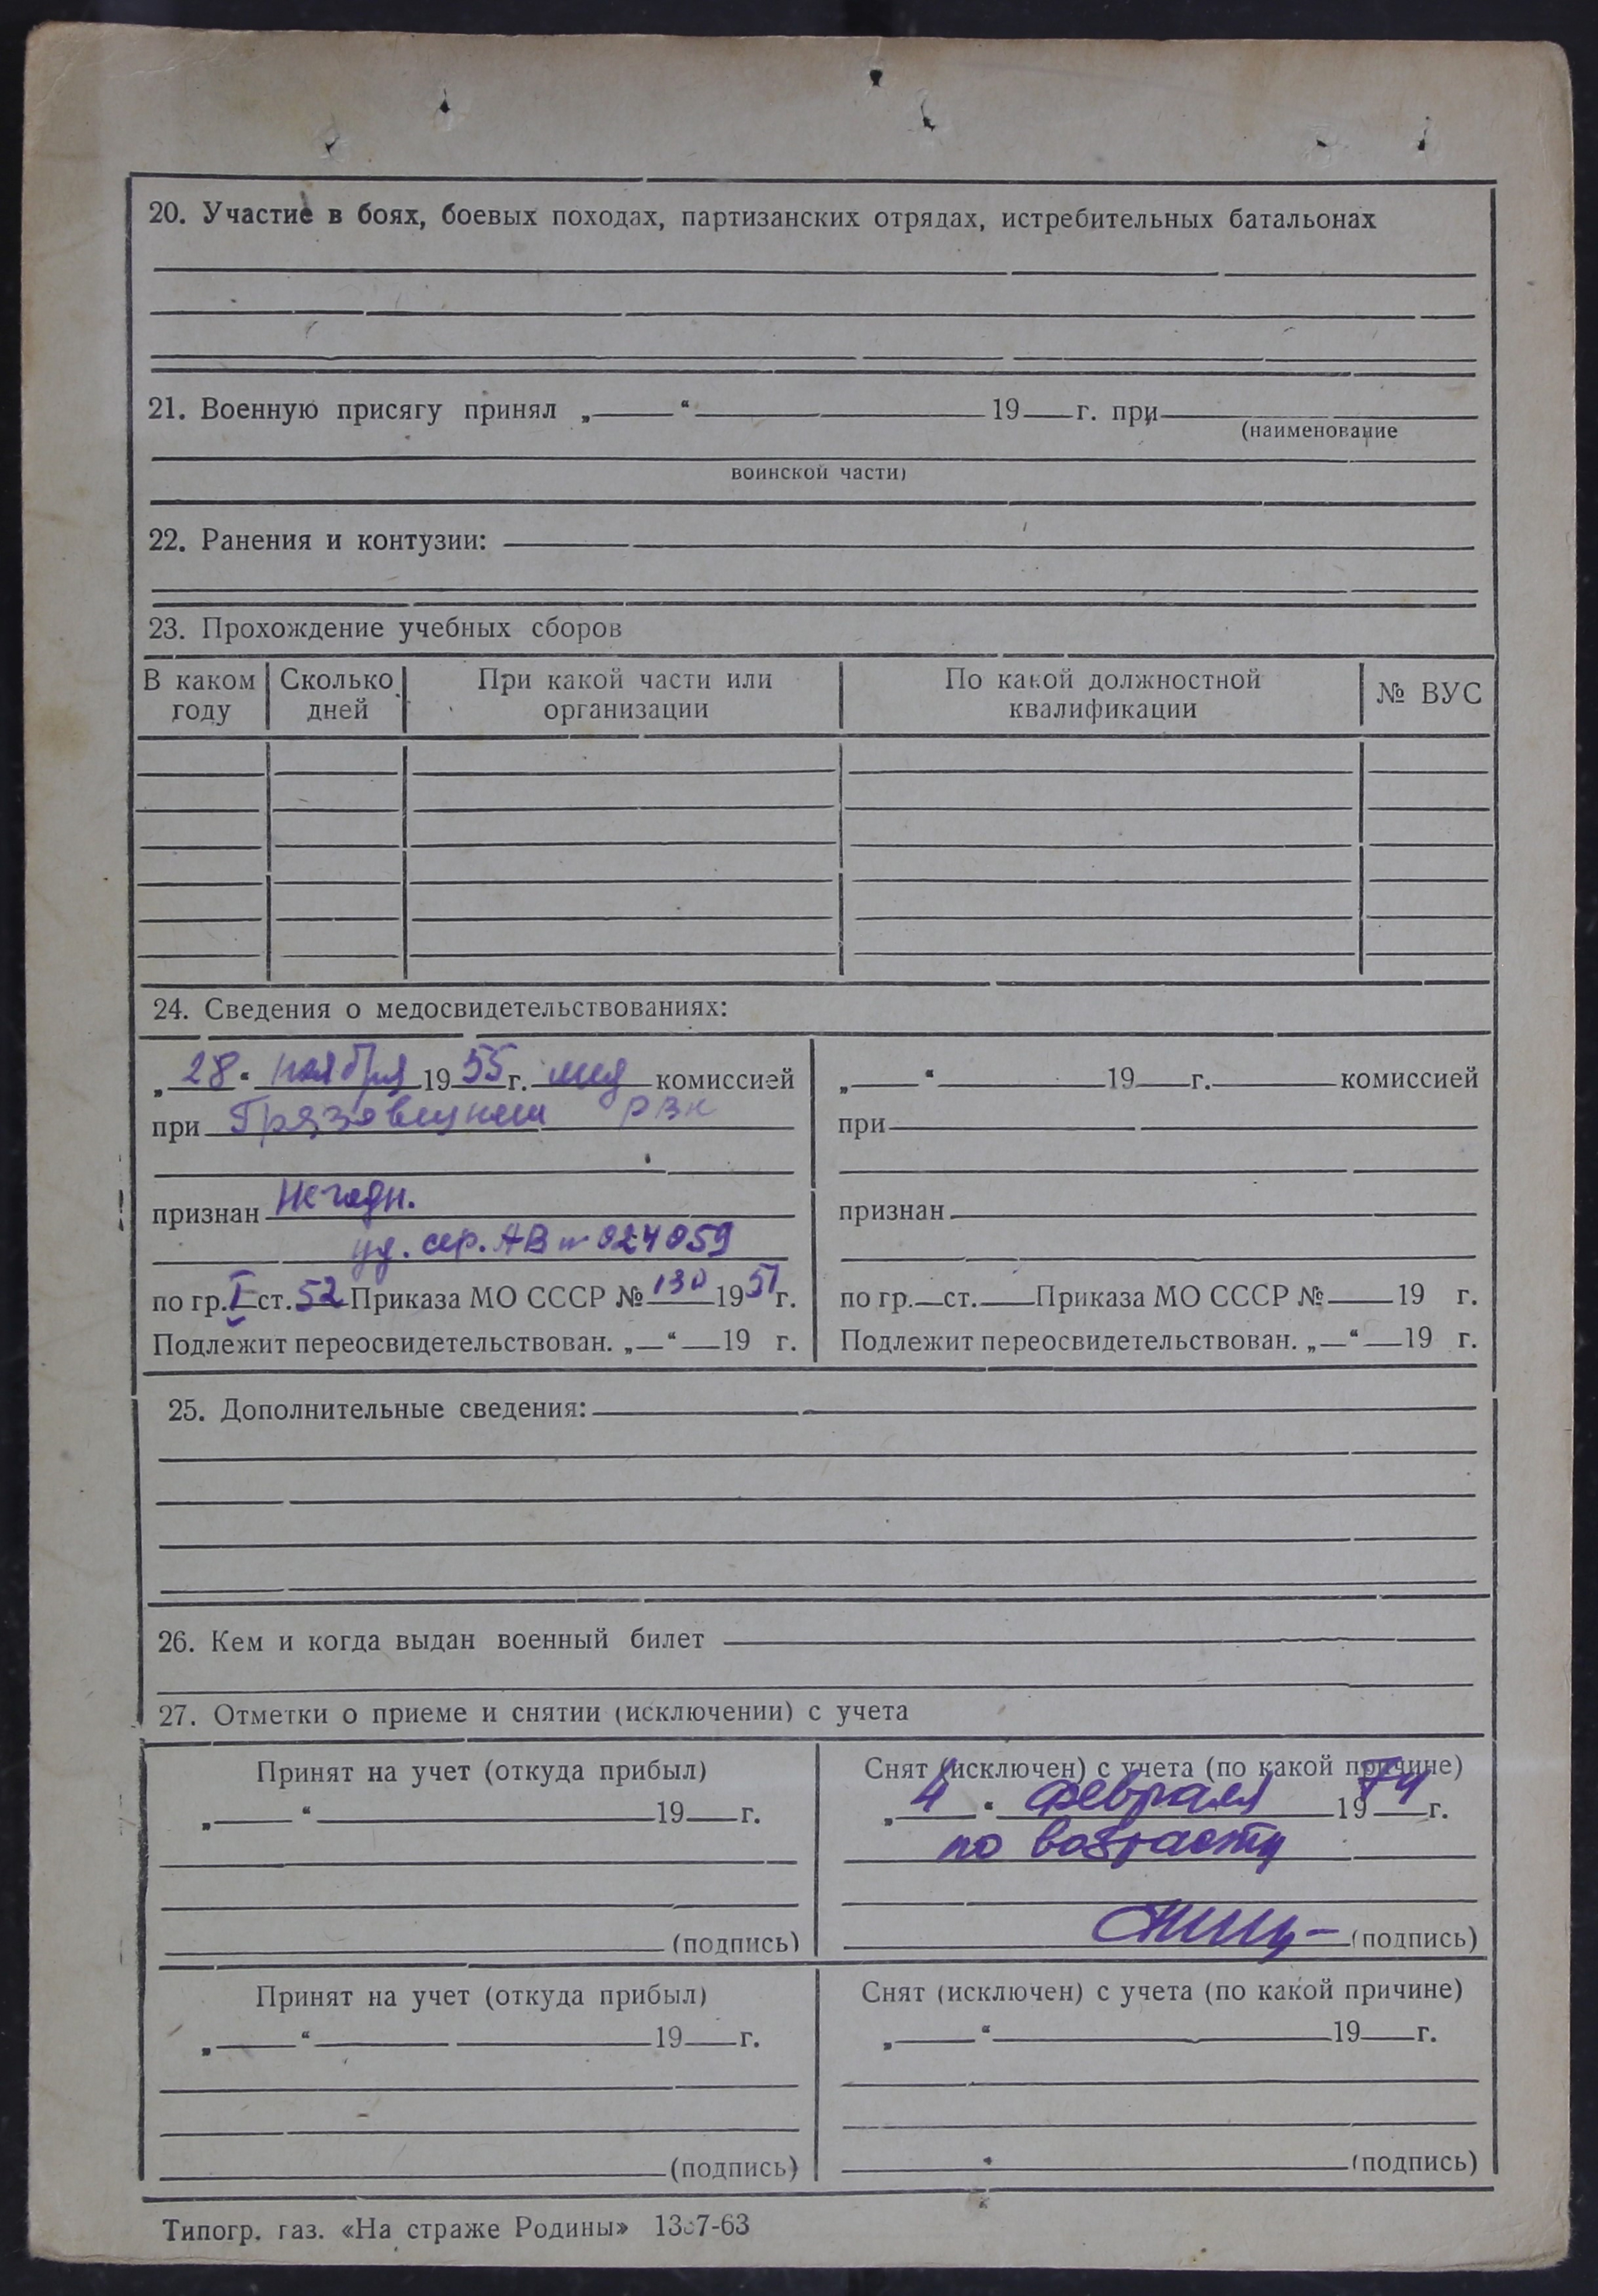 20. Участие в боях, боевых походах, партизанских отрядах, истребительных батальонах
21. Военную присягу принял „ “ 19 г. при
(наименование
воинской части)
22. Ранения и контузии:
23. Прохождение учебных сборов
В каком году Сколько дней При какой части или организации По какой должностной квалификации № ВУС
24. Сведения о медосвидетельствованиях:
„28“ ноября 1955 г. мед комиссией
при Грязовецком РВК
признан Негодн.
уд. сер. АВ № 024059
по гр. I ст. 52 Приказа МО СССР № 130 1951 г.
Подлежит переосвидетельствован. „ “ 19 г.
„ “ 19 г. комиссией
при
признан
по гр. ст. Приказа МО СССР № 19 г.
Подлежит переосвидетельствован. „ “ 19 г.
25. Дополнительные сведения:
26. Кем и когда выдан военный билет
27. Отметки о приеме и снятии (исключении) с учета
Принят на учет (откуда прибыл)
„ “ 19 г.
(подпись)
Снят (исключен) с учета (по какой причине)
„4“ февраля 1974 г.
по возрасту
(подпись)
Принят на учет (откуда прибыл)
„ “ 19 г.
(подпись)
Снят (исключен) с учета (по какой причине)
„ “ 19 г.
(подпись)
Типогр. газ. «На страже Родины»